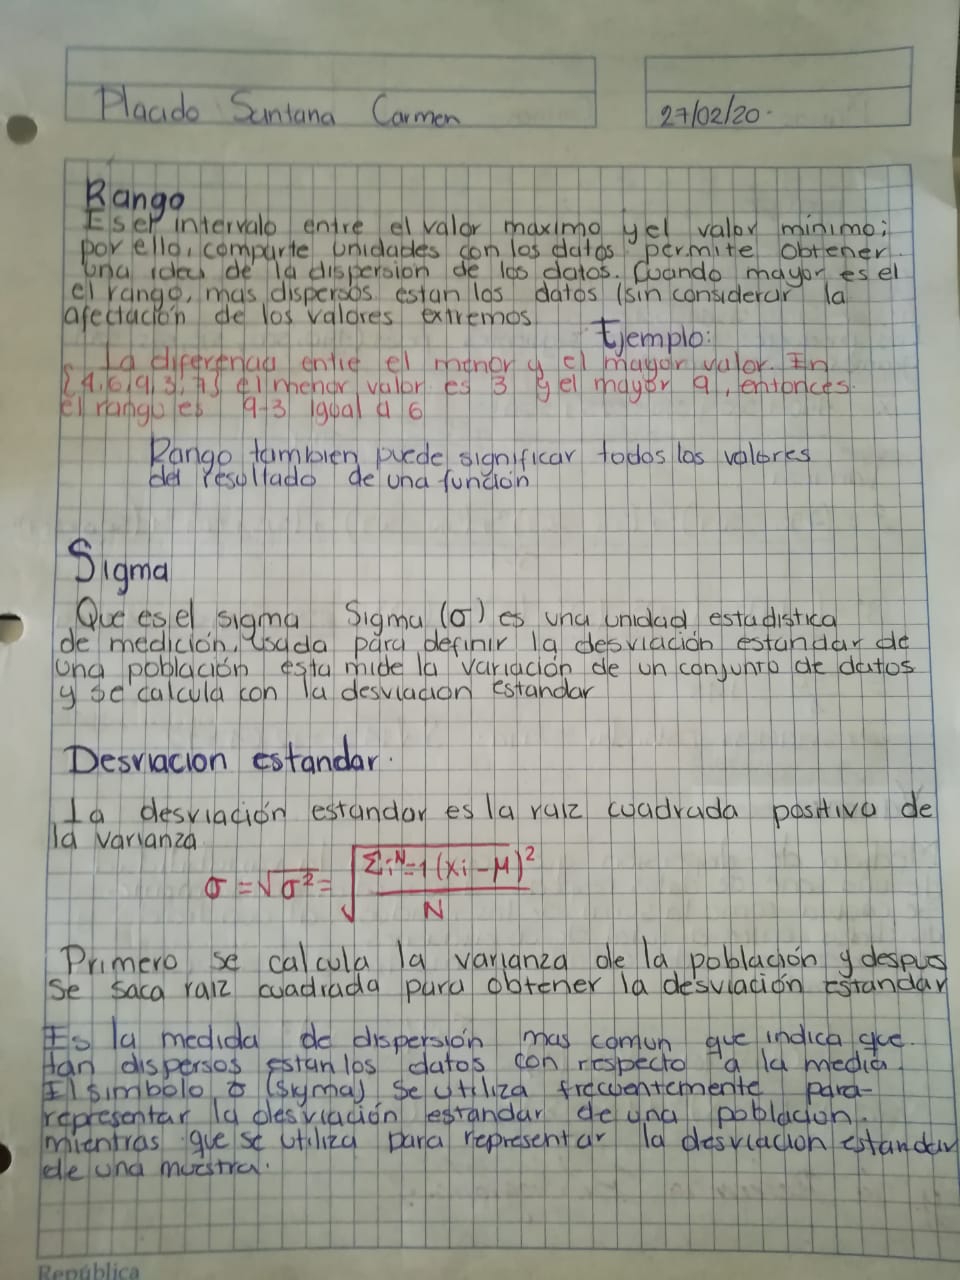 Placido Santana Carmen
27/02/20.
Rango
Es el intervalo entre el valor maximo y el valor minimo;
por ello, comparte unidades con los datos permite obtener
una idea de la dispersion de los datos. Cuando mayor es el
el rango, mas dispersos estan los datos (sin considerar la
afectación de los valores extremos
Ejemplo:
La diferencia entre el menor y el mayor valor. En
{4,6,9,3,7} el menor valor es 3 y el mayor 9, entonces
el rango es 9-3 igual a 6
Rango tambien puede significar todos los valores
del resultado de una función
Sigma
Que es el sigma Sigma (σ) es una unidad estadistica
de medición, usada para definir la desviación estandar de
una población esta mide la variación de un conjunto de datos
y se calcula con la desviacion estandar
Desviacion estandar.
La desviación estandar es la raiz cuadrada positiva de
la varianza
σ = √σ² = √Σi^N=1 (xi - μ)²
N
Primero se calcula la varianza de la población y despus
se saca raiz cuadrada para obtener la desviación estandar
Es la medida de dispersión mas comun que indica que
tan dispersos estan los datos con respecto a la media.
El simbolo σ (sigma) se utiliza frecuentemente para-
representar la desviación estandar de una poblacion.
mientras que se utiliza para representar la desviacion estandar
de una muestra.
República